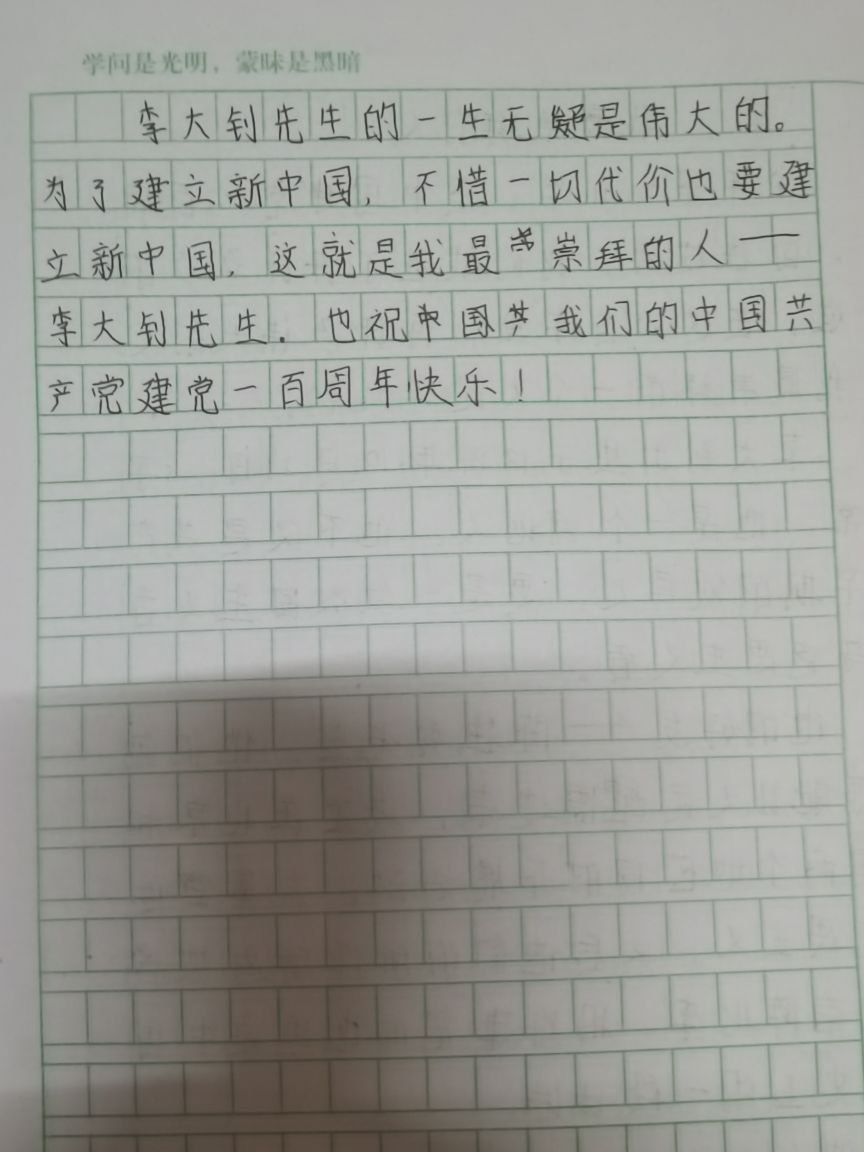 学问是光明，蒙昧是黑暗
李大钊先生的一生无疑是伟大的。
为了建立新中国，不借一切代价也要建
立新中国，这就是我最崇拜的人——
李大钊先生．也祝中国共我们的中国共
产党建党一百周年快乐！